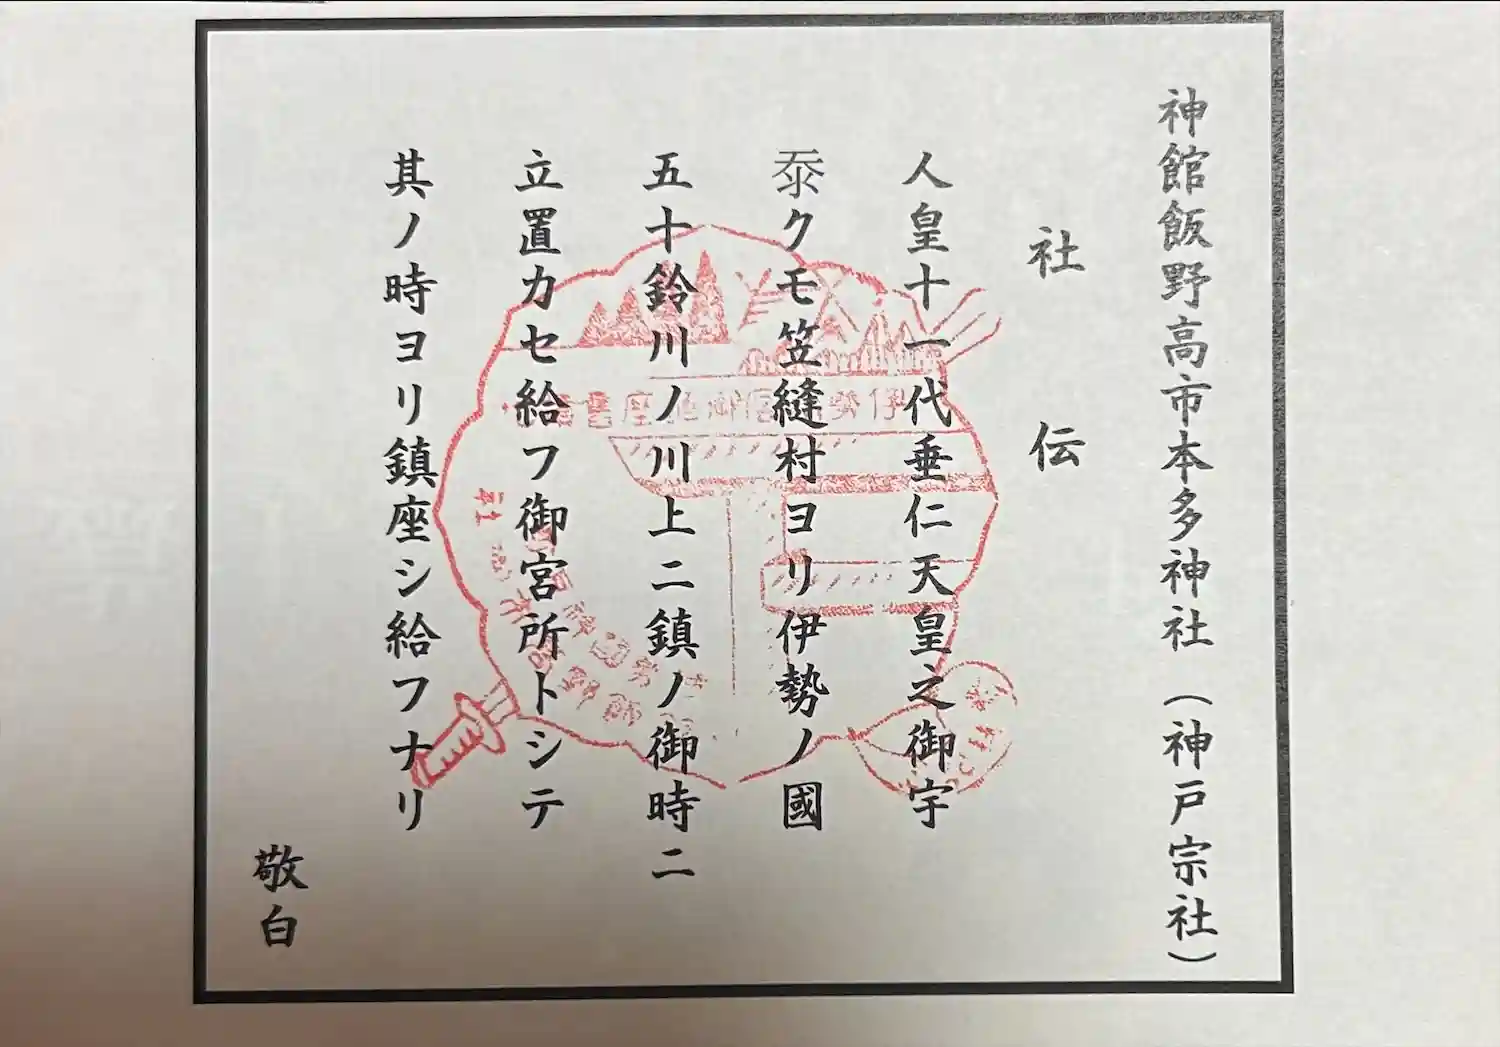 神館飯野高市本多神社（神戸宗社）
社伝
人皇十一代垂仁天皇之御宇
忝クモ笠縫村ヨリ伊勢ノ國
五十鈴川ノ川上ニ鎮ノ御時ニ
立置カセ給フ御宮所トシテ
其ノ時ヨリ鎮座シ給フナリ
敬白